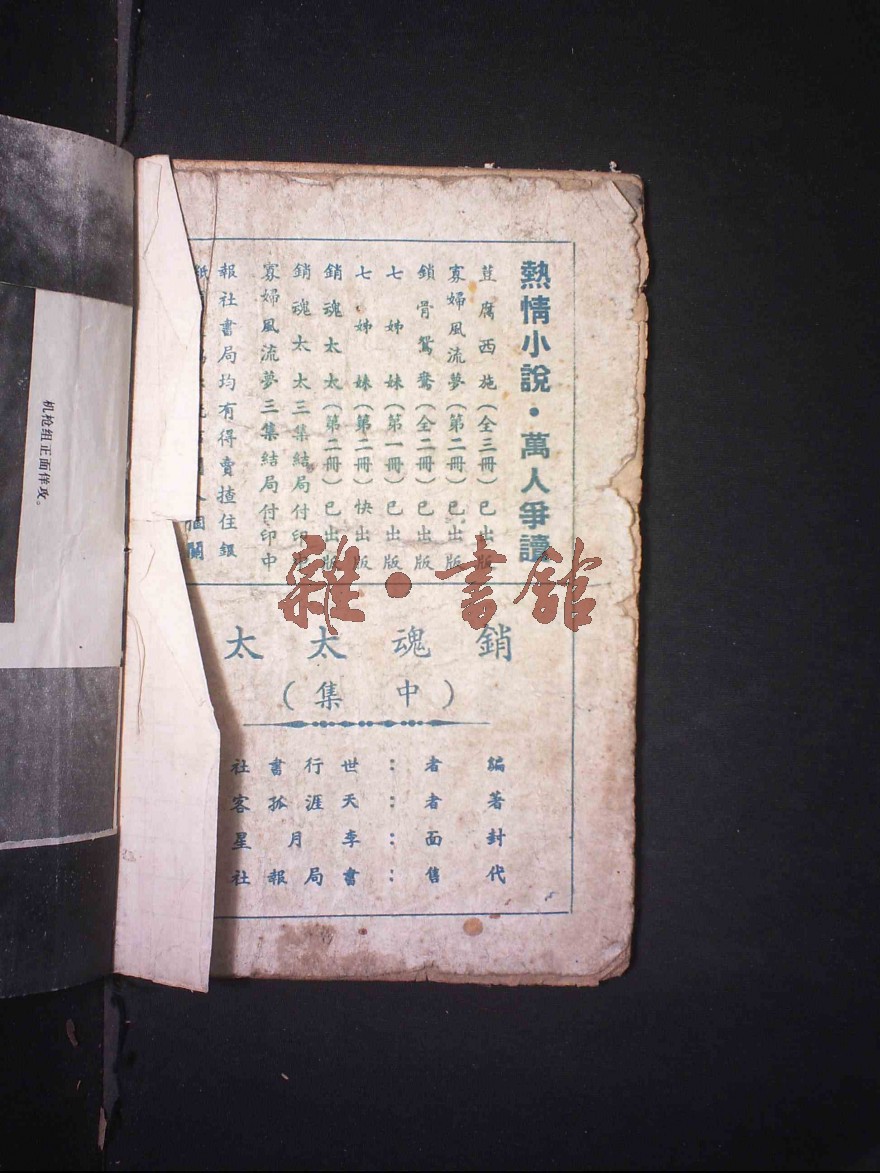 熱情小說・萬人爭讀
荳腐西施(全三冊)已出版
寡婦風流夢(第二冊)已出版
鎖骨鴛鴦(全二冊)已出版
七姊妹(第一冊)已出版
七姊妹(第二冊)快出版
銷魂太太(第二冊)已出版
銷魂太太三集結局付印中
寡婦風流夢三集結局付印中
報社書局均有得賣揸住銀
銷魂太太
(中集)
編者:世行書社
著者:天涯孤客
封面:李月星
代售:書局報社
机枪组正面佯攻。
雜・書館